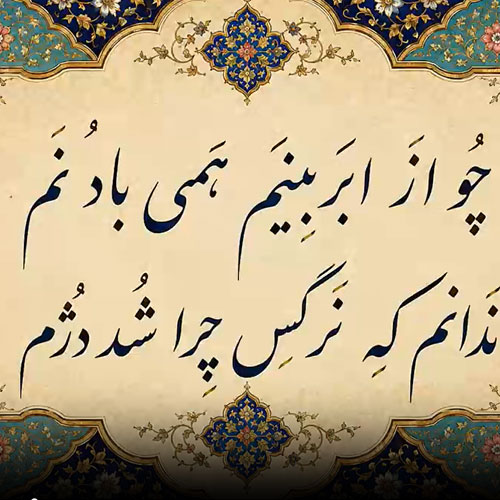 چُو ازَ ابرَ بِینیَم هَمی بادُ نَم
نَدانم کِه نَرگسِ چِرا شُد دُژم